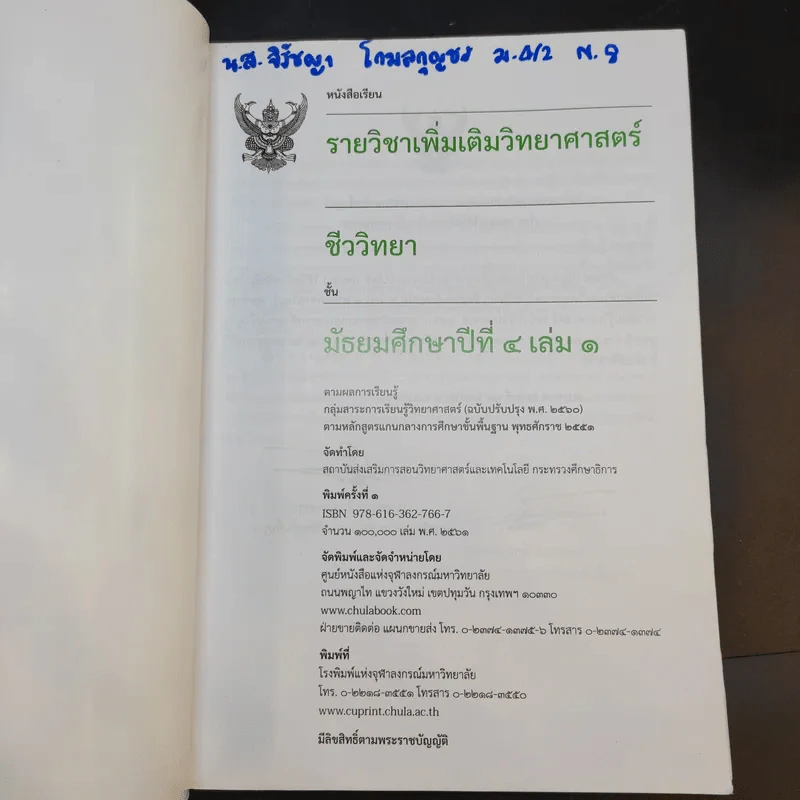 น.ส. จิรัชญา โกมลกุญชร ม.4/2 N. 8
หนังสือเรียน
รายวิชาเพิ่มเติมวิทยาศาสตร์
ชีววิทยา
ชั้น
มัธยมศึกษาปีที่ ๔ เล่ม ๑
ตามผลการเรียนรู้
กลุ่มสาระการเรียนรู้วิทยาศาสตร์ (ฉบับปรับปรุง พ.ศ. ๒๕๖๐)
ตามหลักสูตรแกนกลางการศึกษาขั้นพื้นฐาน พุทธศักราช ๒๕๕๑
จัดทำโดย
สถาบันส่งเสริมการสอนวิทยาศาสตร์และเทคโนโลยี กระทรวงศึกษาธิการ
พิมพ์ครั้งที่ ๑
ISBN 978-616-362-766-7
จำนวน ๑๐๐,๐๐๐ เล่ม พ.ศ. ๒๕๖๑
จัดพิมพ์และจัดจำหน่ายโดย
ศูนย์หนังสือแห่งจุฬาลงกรณ์มหาวิทยาลัย
ถนนพญาไท แขวงวังใหม่ เขตปทุมวัน กรุงเทพฯ ๑๐๓๓๐
www.chulabook.com
ฝ่ายขายติดต่อ แผนกขายส่ง โทร. ๐-๒๓๗๔-๑๓๗๕-๖ โทรสาร ๐-๒๓๗๔-๑๓๗๔
พิมพ์ที่
โรงพิมพ์แห่งจุฬาลงกรณ์มหาวิทยาลัย
โทร. ๐-๒๒๑๘-๓๕๕๑ โทรสาร ๐-๒๒๑๘-๓๕๕๐
www.cuprint.chula.ac.th
มีลิขสิทธิ์ตามพระราชบัญญัติ